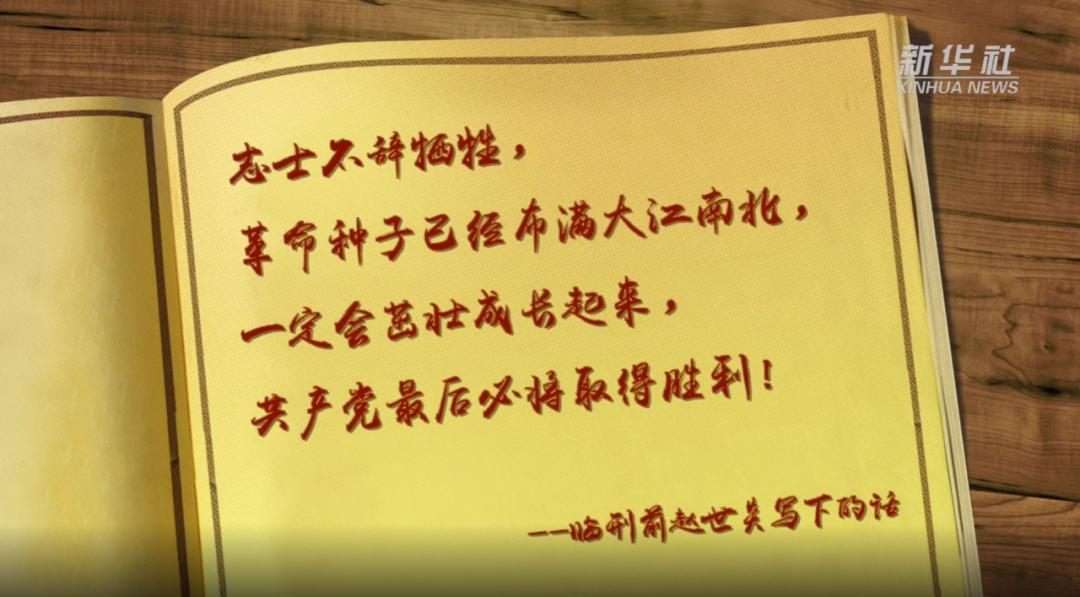 新华社
XINHUA NEWS
志士不辞牺牲，
革命种子已经布满大江南北，
一定会茁壮成长起来，
共产党最后必将取得胜利！
---临刑前赵世炎写下的话